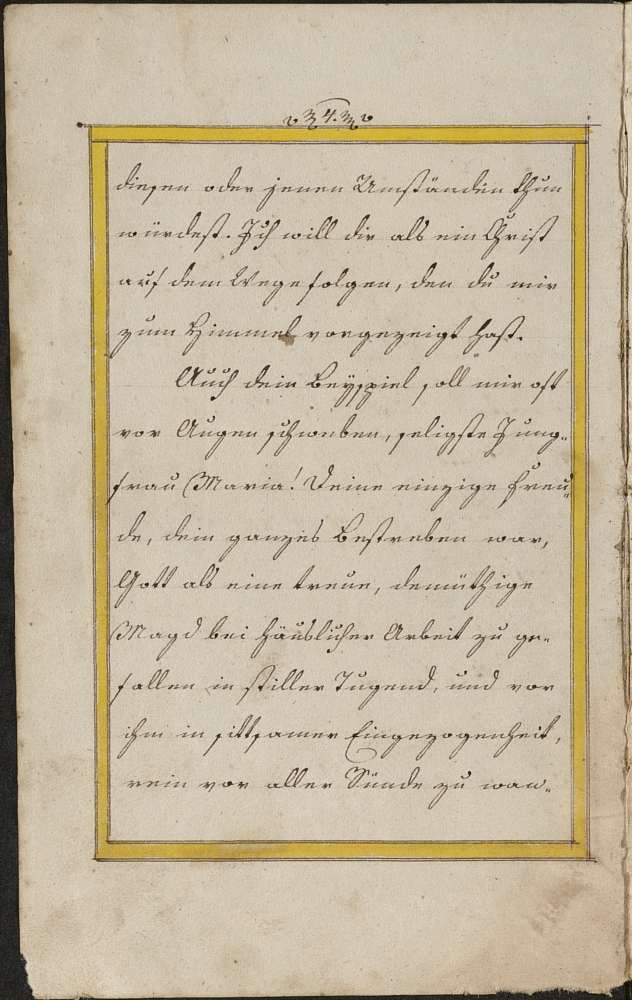 4.
diesen oder jenen Umständen thun
würdest. Ich will dir als ein Christ
auf dem Wege folgen, den du mir
zum Himmel vorgezeigt hast.
Auch dein Beyspiel soll mir oft
vor Augen schweben, seligste Jung-
frau Maria! Deine einzige Freu-
de, dein ganzes Bestreben war,
Gott als eine treue, demüthige
Magd bei häuslicher Arbeit zu ge-
fallen in stiller Tugend, und vor
ihm in sittsamer Eingezogenheit,
rein vor aller Sünde zu wan-